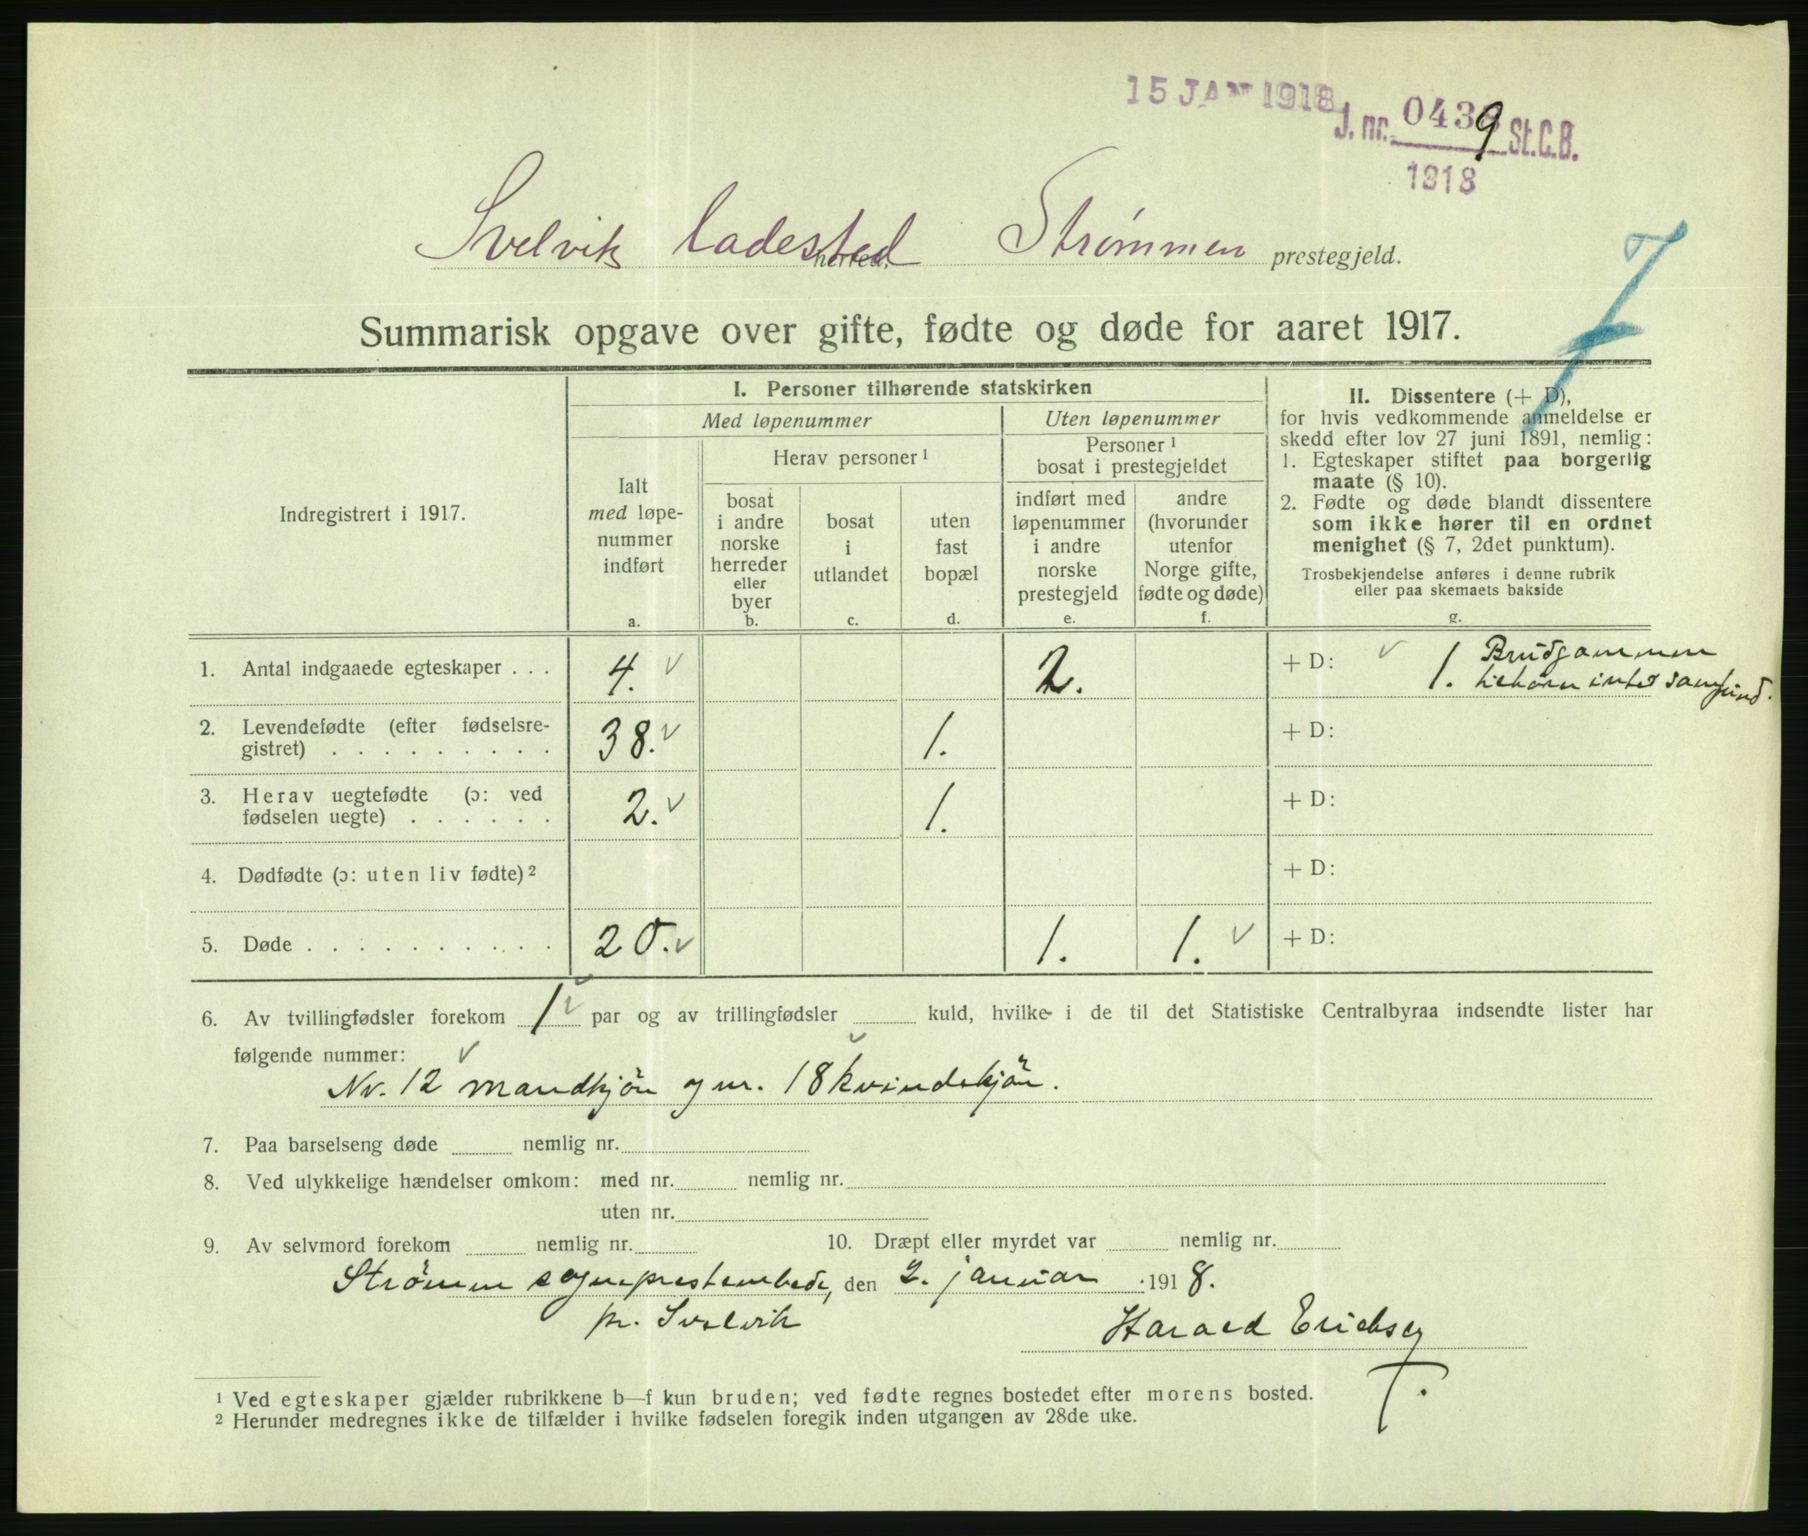 15 JAN 1918
J. nr. 0439 St.C.B.
1918
Svelvik ladested herred, Strømmen prestegjeld.
Summarisk opgave over gifte, fødte og døde for aaret 1917.
Indregistrert i 1917.
I. Personer tilhørende statskirken
Med løpenummer
Uten løpenummer
Ialt
med løpe-
nummer
indført
a.
Herav personer ¹
bosat
i andre
norske
herreder
eller
byer
b.
bosat
i
utlandet
c.
uten
fast
bopæl
d.
Personer ¹
bosat i prestegjeldet
indført med
løpenummer
i andre
norske
prestegjeld
e.
andre
(hvorunder
utenfor
Norge gifte,
fødte og døde)
f.
II. Dissentere (+ D),
for hvis vedkommende anmeldelse er
skedd efter lov 27 juni 1891, nemlig:
1. Egteskaper stiftet paa borgerlig
maate (§ 10).
2. Fødte og døde blandt dissentere
som ikke hører til en ordnet
menighet (§ 7, 2det punktum).
Trosbekjendelse anføres i denne rubrik
eller paa skemaets bakside
g.
1. Antal indgaaede egteskaper . . . 4. 2. + D: 1. Brudgommen
intet samfund.
2. Levendefødte (efter fødselsre-
gistret) . . . . . . . . . 38. 1. + D:
3. Herav uegtefødte (ɔ: ved
fødselen uegte) . . . . . . 2. 1. + D:
4. Dødfødte (ɔ: uten liv fødte) ² + D:
5. Døde . . . . . . . . . . 20. 1. 1. + D:
6. Av tvillingfødsler forekom 1 par og av trillingfødsler kuld, hvilke i de til det Statistiske Centralbyraa indsendte lister har
følgende nummer:
Nr. 12 mandkjön og nr. 18 kvindekjön.
7. Paa barselseng døde nemlig nr.
8. Ved ulykkelige hændelser omkom: med nr. nemlig nr.
uten nr.
9. Av selvmord forekom nemlig nr. 10. Dræpt eller myrdet var nemlig nr.
Strømm sogneprestembede, den 2. januar 1918.
pr. Svelvik
Harald Ericksen
¹ Ved egteskaper gjælder rubrikkene b—f kun bruden; ved fødte regnes bostedet efter morens bosted.
² Herunder medregnes ikke de tilfælder i hvilke fødselen foregik inden utgangen av 28de uke.